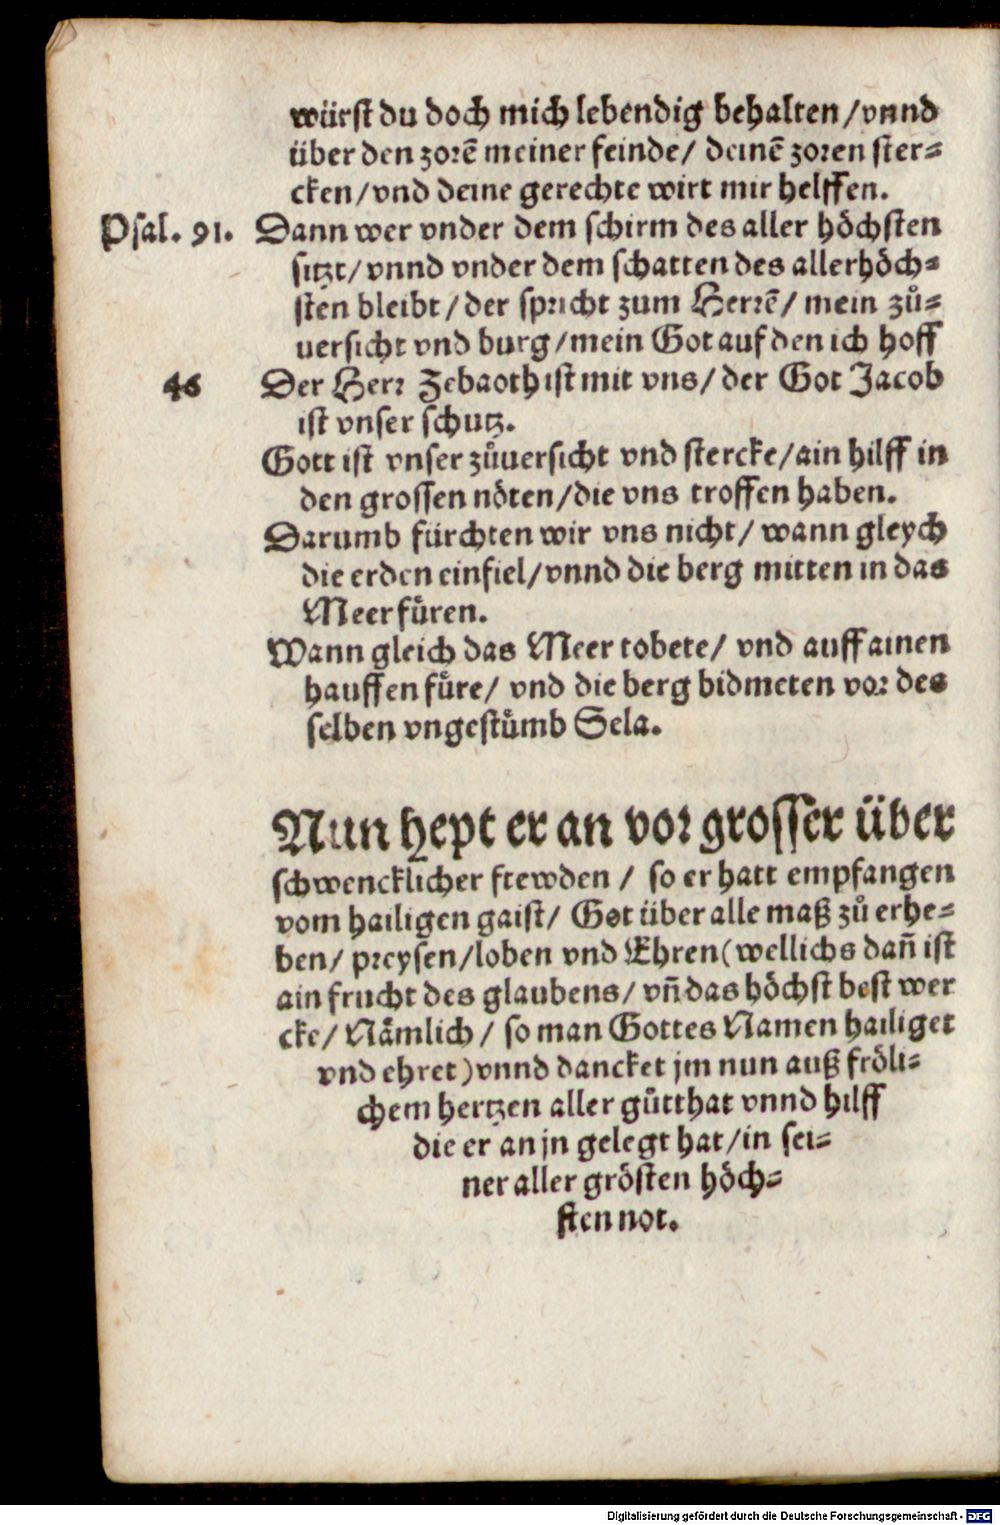 würst du doch mich lebendig behalten / vnnd
über den zorē meiner feinde / deinē zoren ster⸗
cken / vnd deine gerechte wirt mir helffen.
Psal. 91. Dann wer vnder dem schirm des aller höchsten
sitzt / vnnd vnder dem schatten des allerhöch⸗
sten bleibt / der spricht zum Herrē / mein zů⸗
uersicht vnd burg / mein Got auf den ich hoff
46 Der Herr Zebaoth ist mit vns / der Got Jacob
ist vnser schutz.
Gott ist vnser zůuersicht vnd stercke / ain hilff in
den grossen nöten / die vns troffen haben.
Darumb fürchten wir vns nicht / wann gleych
die erden einfiel / vnnd die berg mitten in das
Meer fůren.
Wann gleich das Meer tobete / vnd auff ainen
hauffen fůre / vnd die berg bidmeten vor des
selben vngestůmb Sela.
Nun hept er an vor grosser über
schwencklicher frewden / so er hatt empfangen
vom hailigen gaist / Got über alle maß zů erhe⸗
ben / preysen / loben vnd Ehren (wellichs dañ ist
ain frucht des glaubens / vñ das höchst best wer
cke / Nämlich / so man Gottes Namen hailiget
vnd ehret) vnnd dancket jm nun auß fröli⸗
chem hertzen aller gůtthat vnnd hilff
die er an jn gelegt hat / in sei⸗
ner aller grösten höch⸗
sten not.
Digitalisierung gefördert durch die Deutsche Forschungsgemeinschaft - DFG